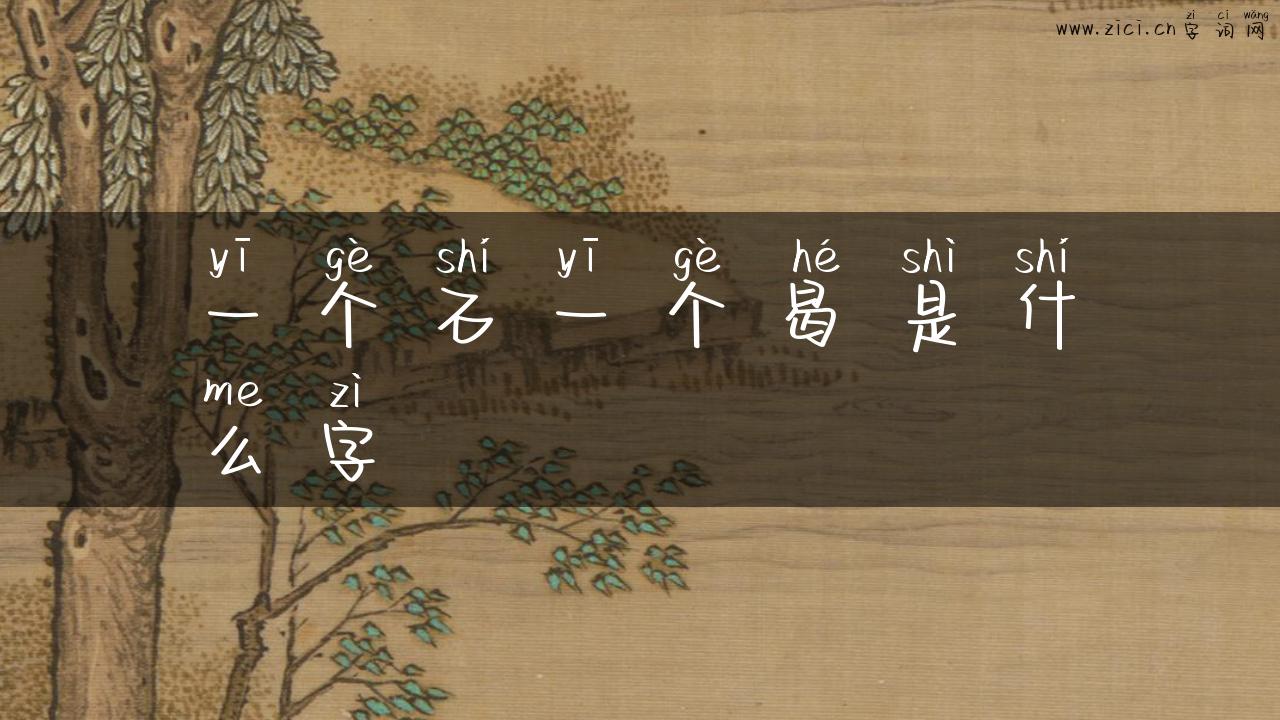 zì cí wǎng
www.zici.cn 字词网
yī gè shí yī gè hé shì shí
一个石一个曷是什
me zì
么字